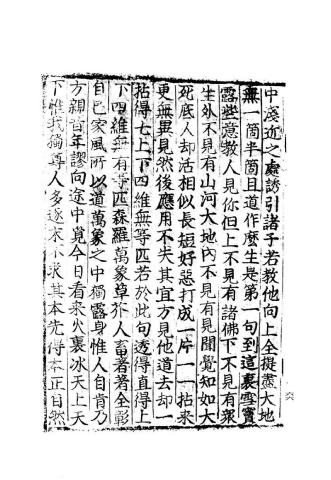 中淺近之處誘引諸子若教他向上全提盡大地
無一箇半箇且道作麼生是第一句到這裏雪竇
露些意教人見你但上不見有諸佛下不見有衆
生外不見有山河大地內不見有見聞覺知如大
死底人却活相似長短好惡打成一片一一拈來
更無異見然後應用不失其宜方見他道去却一
拈得七上下四維無等匹若於此句透得直得上
下四維無有等匹森羅萬象草芥人畜著著全彰
自己家風所以道萬象之中獨露身惟人自肯乃
方親昔年謬向途中覓今日看來火裏冰天上天
下惟我獨尊人多逐末不求其本先得本正自然